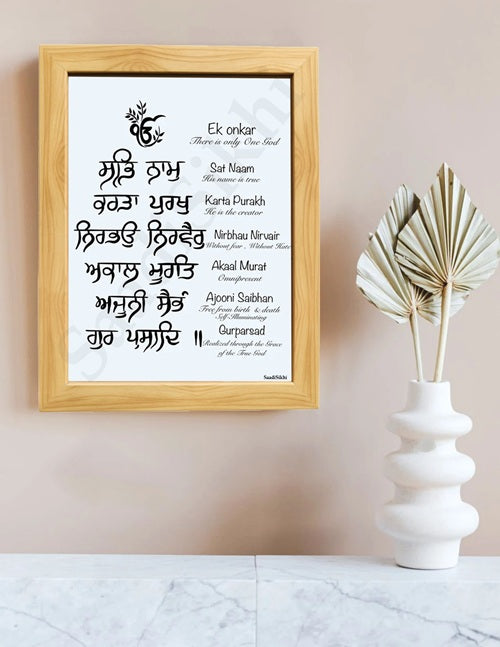 ੴ Ek onkar
There is only One God
ਸਤਿ ਨਾਮੁ Sat Naam
His name is true
ਕਰਤਾ ਪੁਰਖੁ Karta Purakh
He is the creator
ਨਿਰਭਉ ਨਿਰਵੈਰੁ Nirbhau Nirvair
Without fear , Without Hate
ਅਕਾਲ ਮੂਰਤਿ Akaal Murat
Omnipresent
ਅਜੂਨੀ ਸੈਭੰ Ajooni Saibhan
Free from birth & death
Self Illuminating
ਗੁਰ ਪ੍ਰਸਾਦਿ ॥ Gurparsad
Realized through the Grace
of the True God
SaadiSikhi
SaadiSikhi